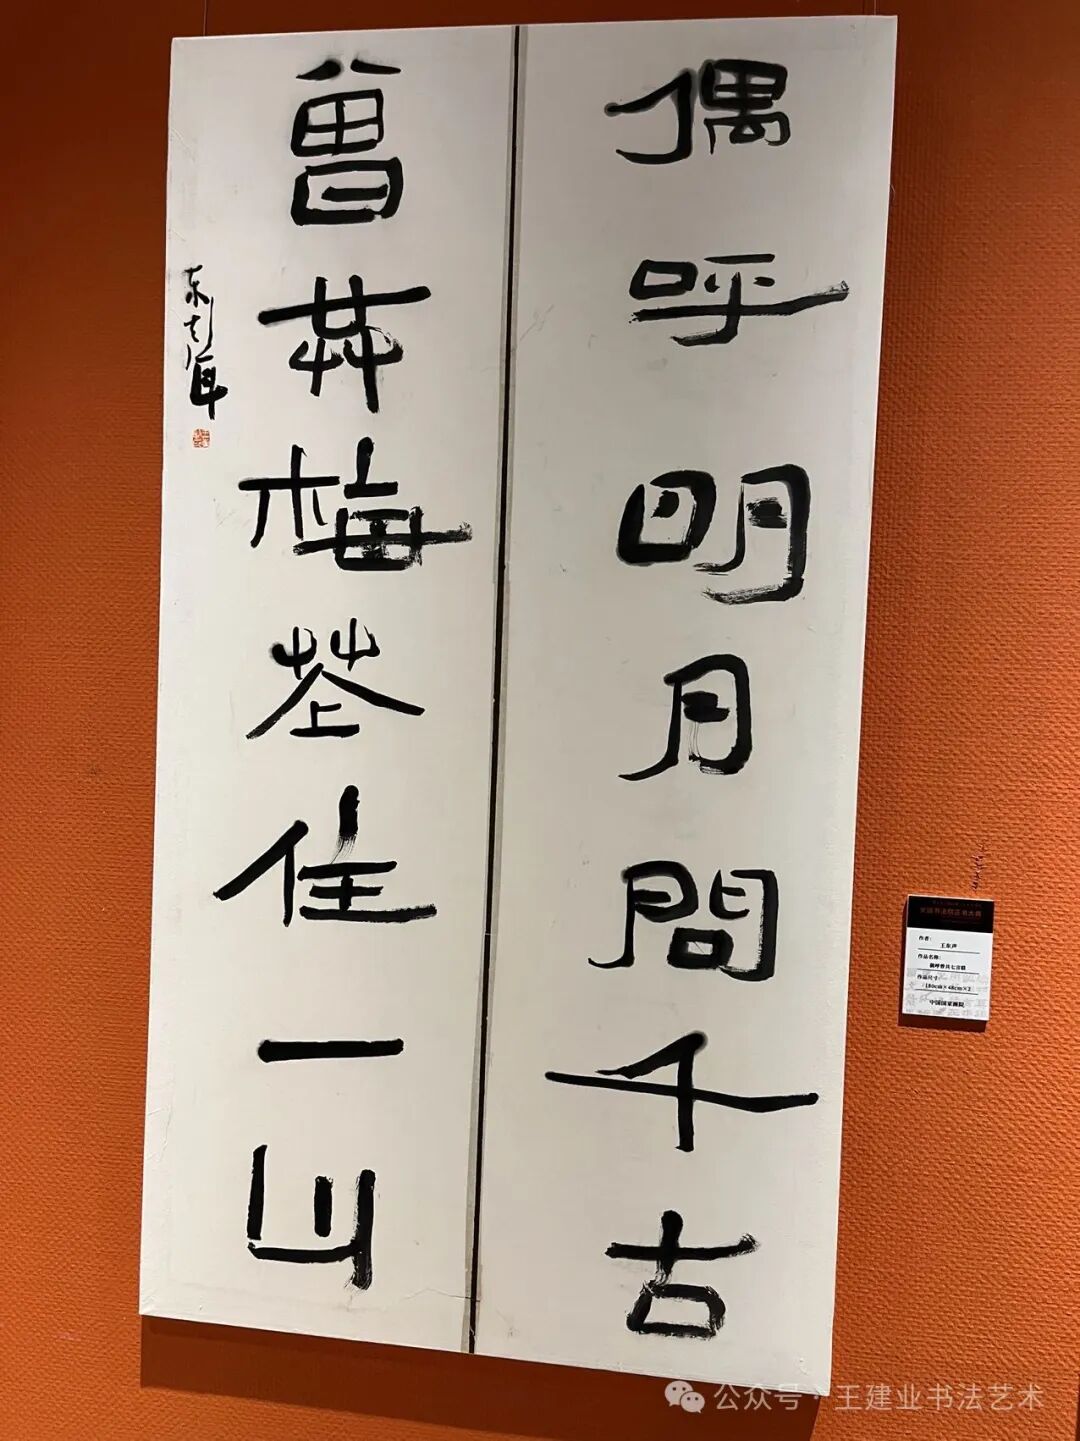 偶呼明月問千古
曾共梅花住一山
作者:
王东声
作品名称:
偶呼曾共七言联
作品尺寸:
180cm×48cm×2
中国国家画院
公众号·王建业书法艺术